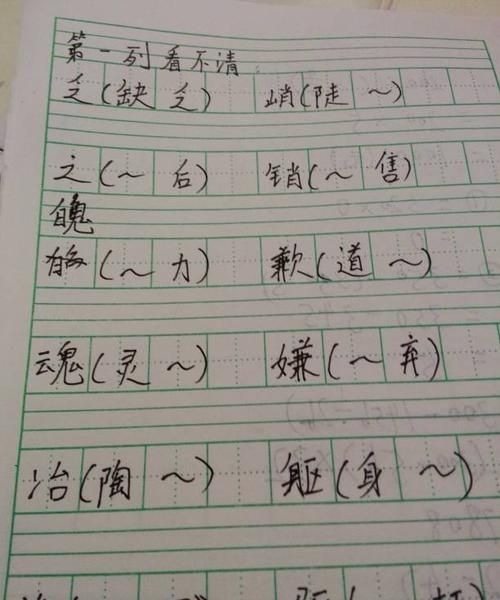 第一列看不清
乏(缺乏) 峭(陡～)
之(～后) 销(～售)
魄
(～力) 歉(道～)
魂(灵～) 嫌(～弃)
冶(陶～) 躯(身～)